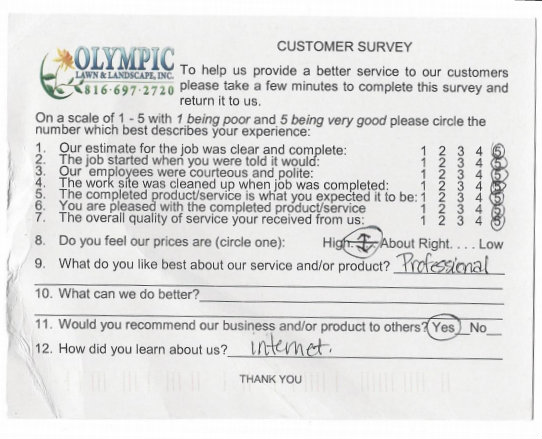 OLYMPIC
LAWN & LANDSCAPE, INC.
816-697-2720
CUSTOMER SURVEY
To help us provide a better service to our customers
please take a few minutes to complete this survey and
return it to us.
On a scale of 1 - 5 with 1 being poor and 5 being very good please circle the
number which best describes your experience:
1. Our estimate for the job was clear and complete: 1 2 3 4 5
2. The job started when you were told it would: 1 2 3 4 5
3. Our employees were courteous and polite: 1 2 3 4 5
4. The work site was cleaned up when job was completed: 1 2 3 4 5
5. The completed product/service is what you expected it to be: 1 2 3 4 5
6. You are pleased with the completed product/service 1 2 3 4 5
7. The overall quality of service your received from us: 1 2 3 4 5
8. Do you feel our prices are (circle one): High. . . . About Right. . . . Low
9. What do you like best about our service and/or product? Professional
10. What can we do better?
11. Would you recommend our business and/or product to others? Yes No
12. How did you learn about us? internet.
THANK YOU